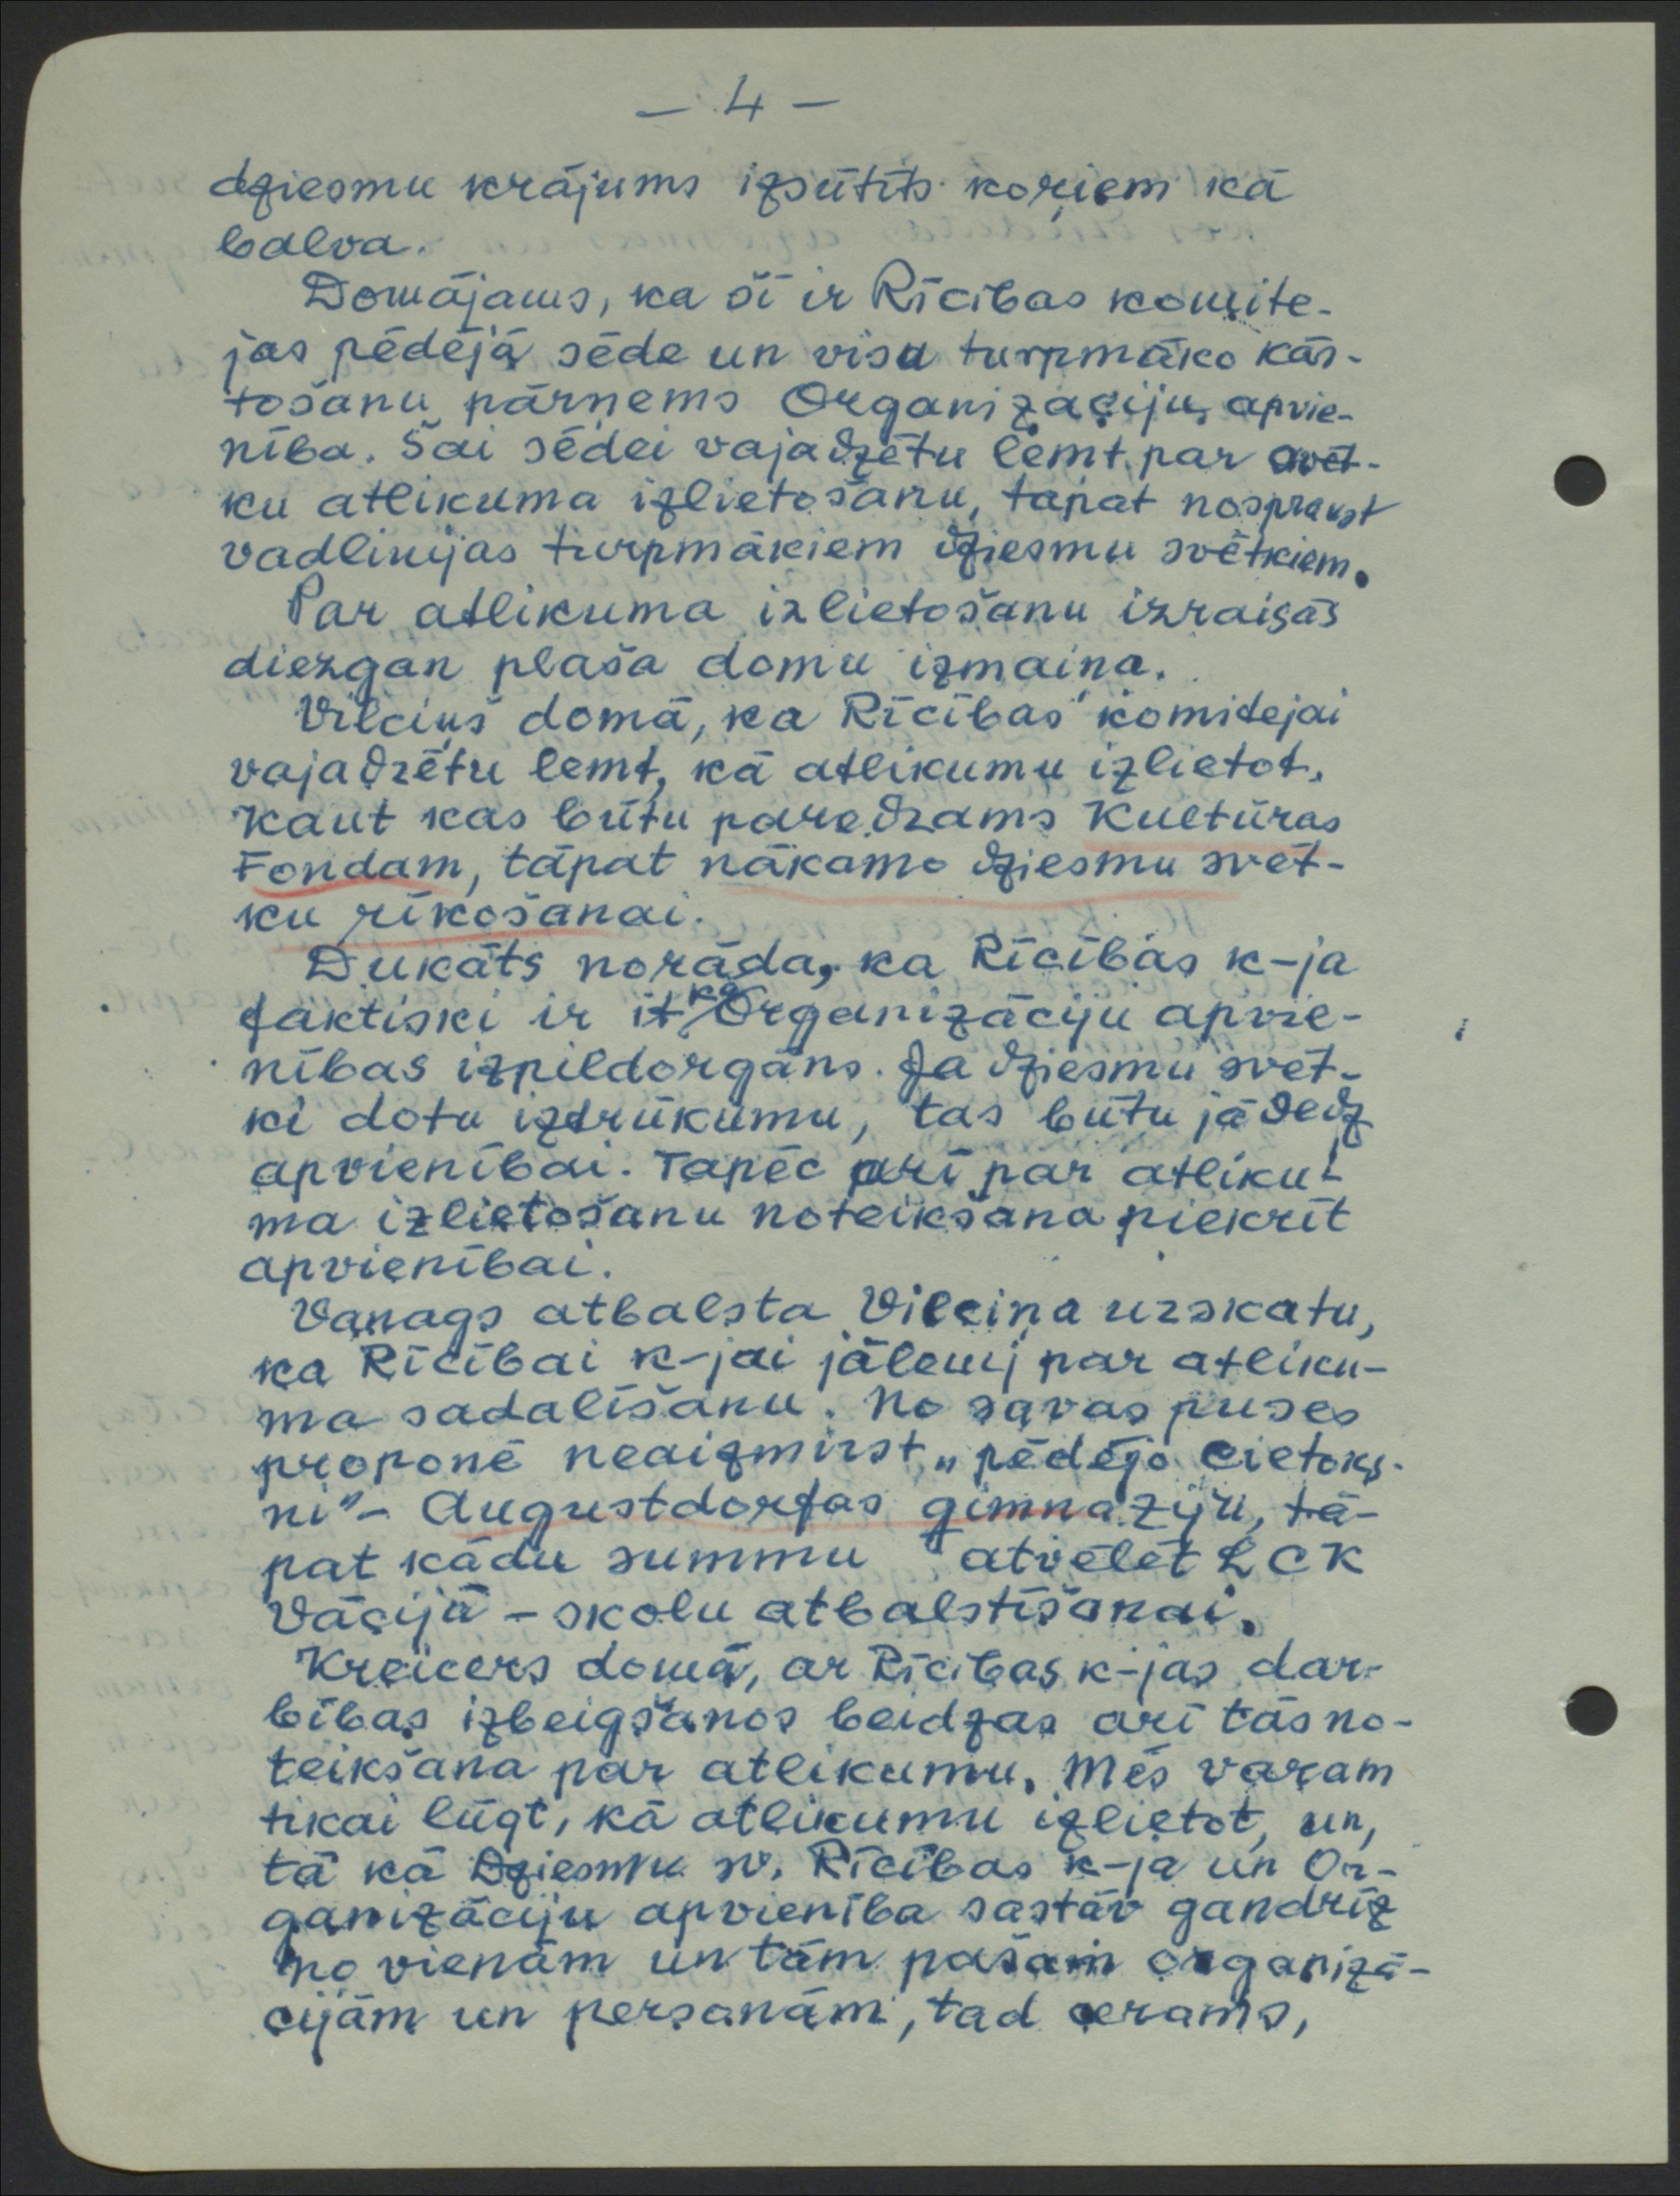 – 4 –
dziesmu krājums izsūtīts koŗiem kā
balva.
Domājams, ka šī ir Rīcības komite-
jas pēdējā sēde un visu turpmāko kār-
tošanu pārņems Organizāciju apvie-
nība. Šai sēdei vajadzētu lemt par svēt-
ku atlikuma izlietošanu, tāpat nospraust
vadlinijas turpmākiem dziesmu svētkiem.
Par atlikuma izlietošanu izraisās
diezgan plaša domu izmaiņa.
Vilciņš domā, ka Rīcības komitejai
vajadzētu lemt, kā atlikumu izlietot.
Kaut kas būtu paredzams Kultūras
Fondam, tāpat nākamo dziesmu svēt-
ku rīkošanai.
Dukāts norāda, ka Rīcības k-ja
faktiski ir it kā Organizāciju apvie-
nības izpildorgāns. Ja dziesmu svēt-
ki dotu iztrūkumu, tas būtu jāsedz
apvienībai. Tapēc arī par atliku-
ma izlietošanu noteikšana piekrīt
apvienībai.
Vanags atbalsta Vilciņa uzskatu,
ka Rīcībai k-jai jālemj par atliku-
ma sadalīšanu. No savas puses
proponē neaizmirst „pēdējo cietoks-
ni" – Augustdorfas gimnaziju, tā-
pat kādu summu atvēlēt LCK
Vācijā – skolu atbalstīšanai.
Kreicers domā, ar Rīcības k-jas dar-
bības izbeigšanos beidzas arī tās no-
teikšana par atlikumu. Mēs varam
tikai lūgt, kā atlikumu izlietot, un,
tā kā Dziesmu sv. Rīcības k-ja un Or-
ganizāciju apvienība sastāv gandrīz
no vienām un tām pašām organizā-
cijām un personām, tad cerams,